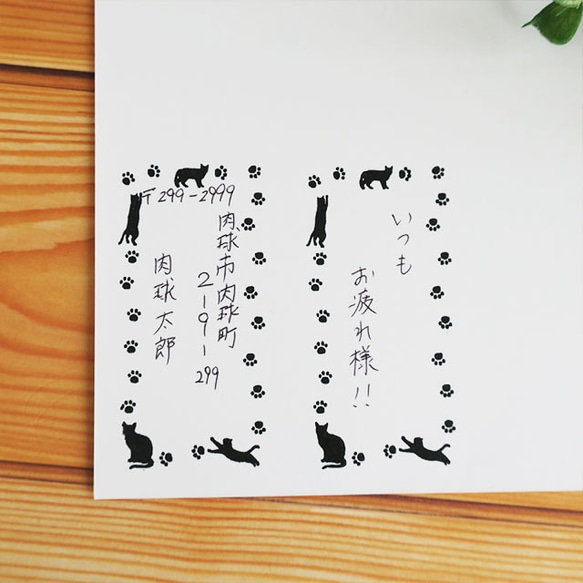 〒299-2999
肉球市肉球町
2-9-299
肉球太郎
いつも
お疲れ様!!